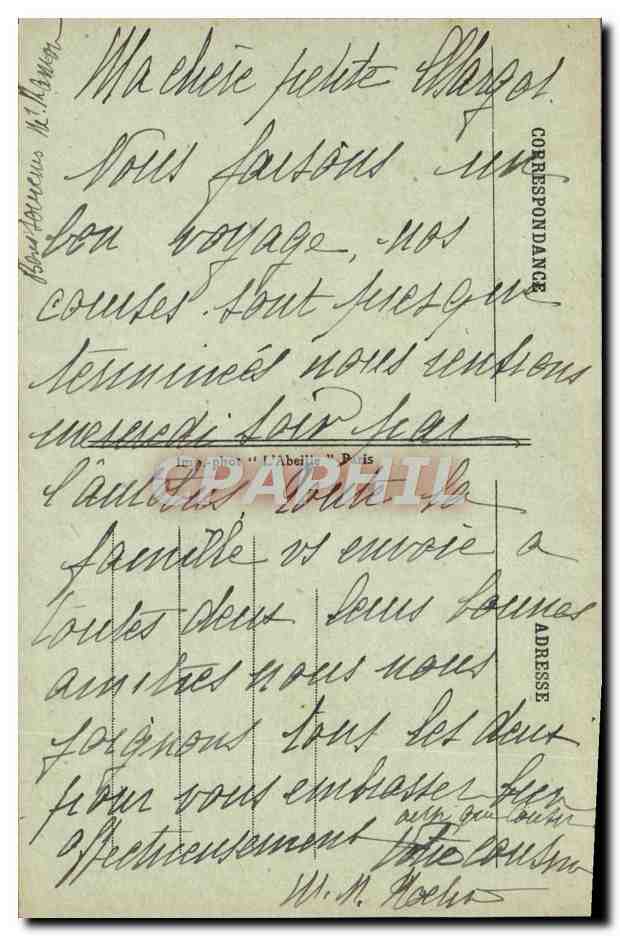 Ma chère petite Margot.
Nous faisons un
bon voyage, nos
courses sont presque
terminées nous rentrons
mercredi soir par
Imp.-phot "L'Abeille" Paris
CPAPHIL
l'autobus, toute la
famille vs envoie a
toutes deux leurs bonnes
amitiés nous nous
joignons tous les deux
pour vous embrasser bien
affectueusement
Votre cousin
M. M.
Bons souvenirs
CORRESPONDANCE
ADRESSE